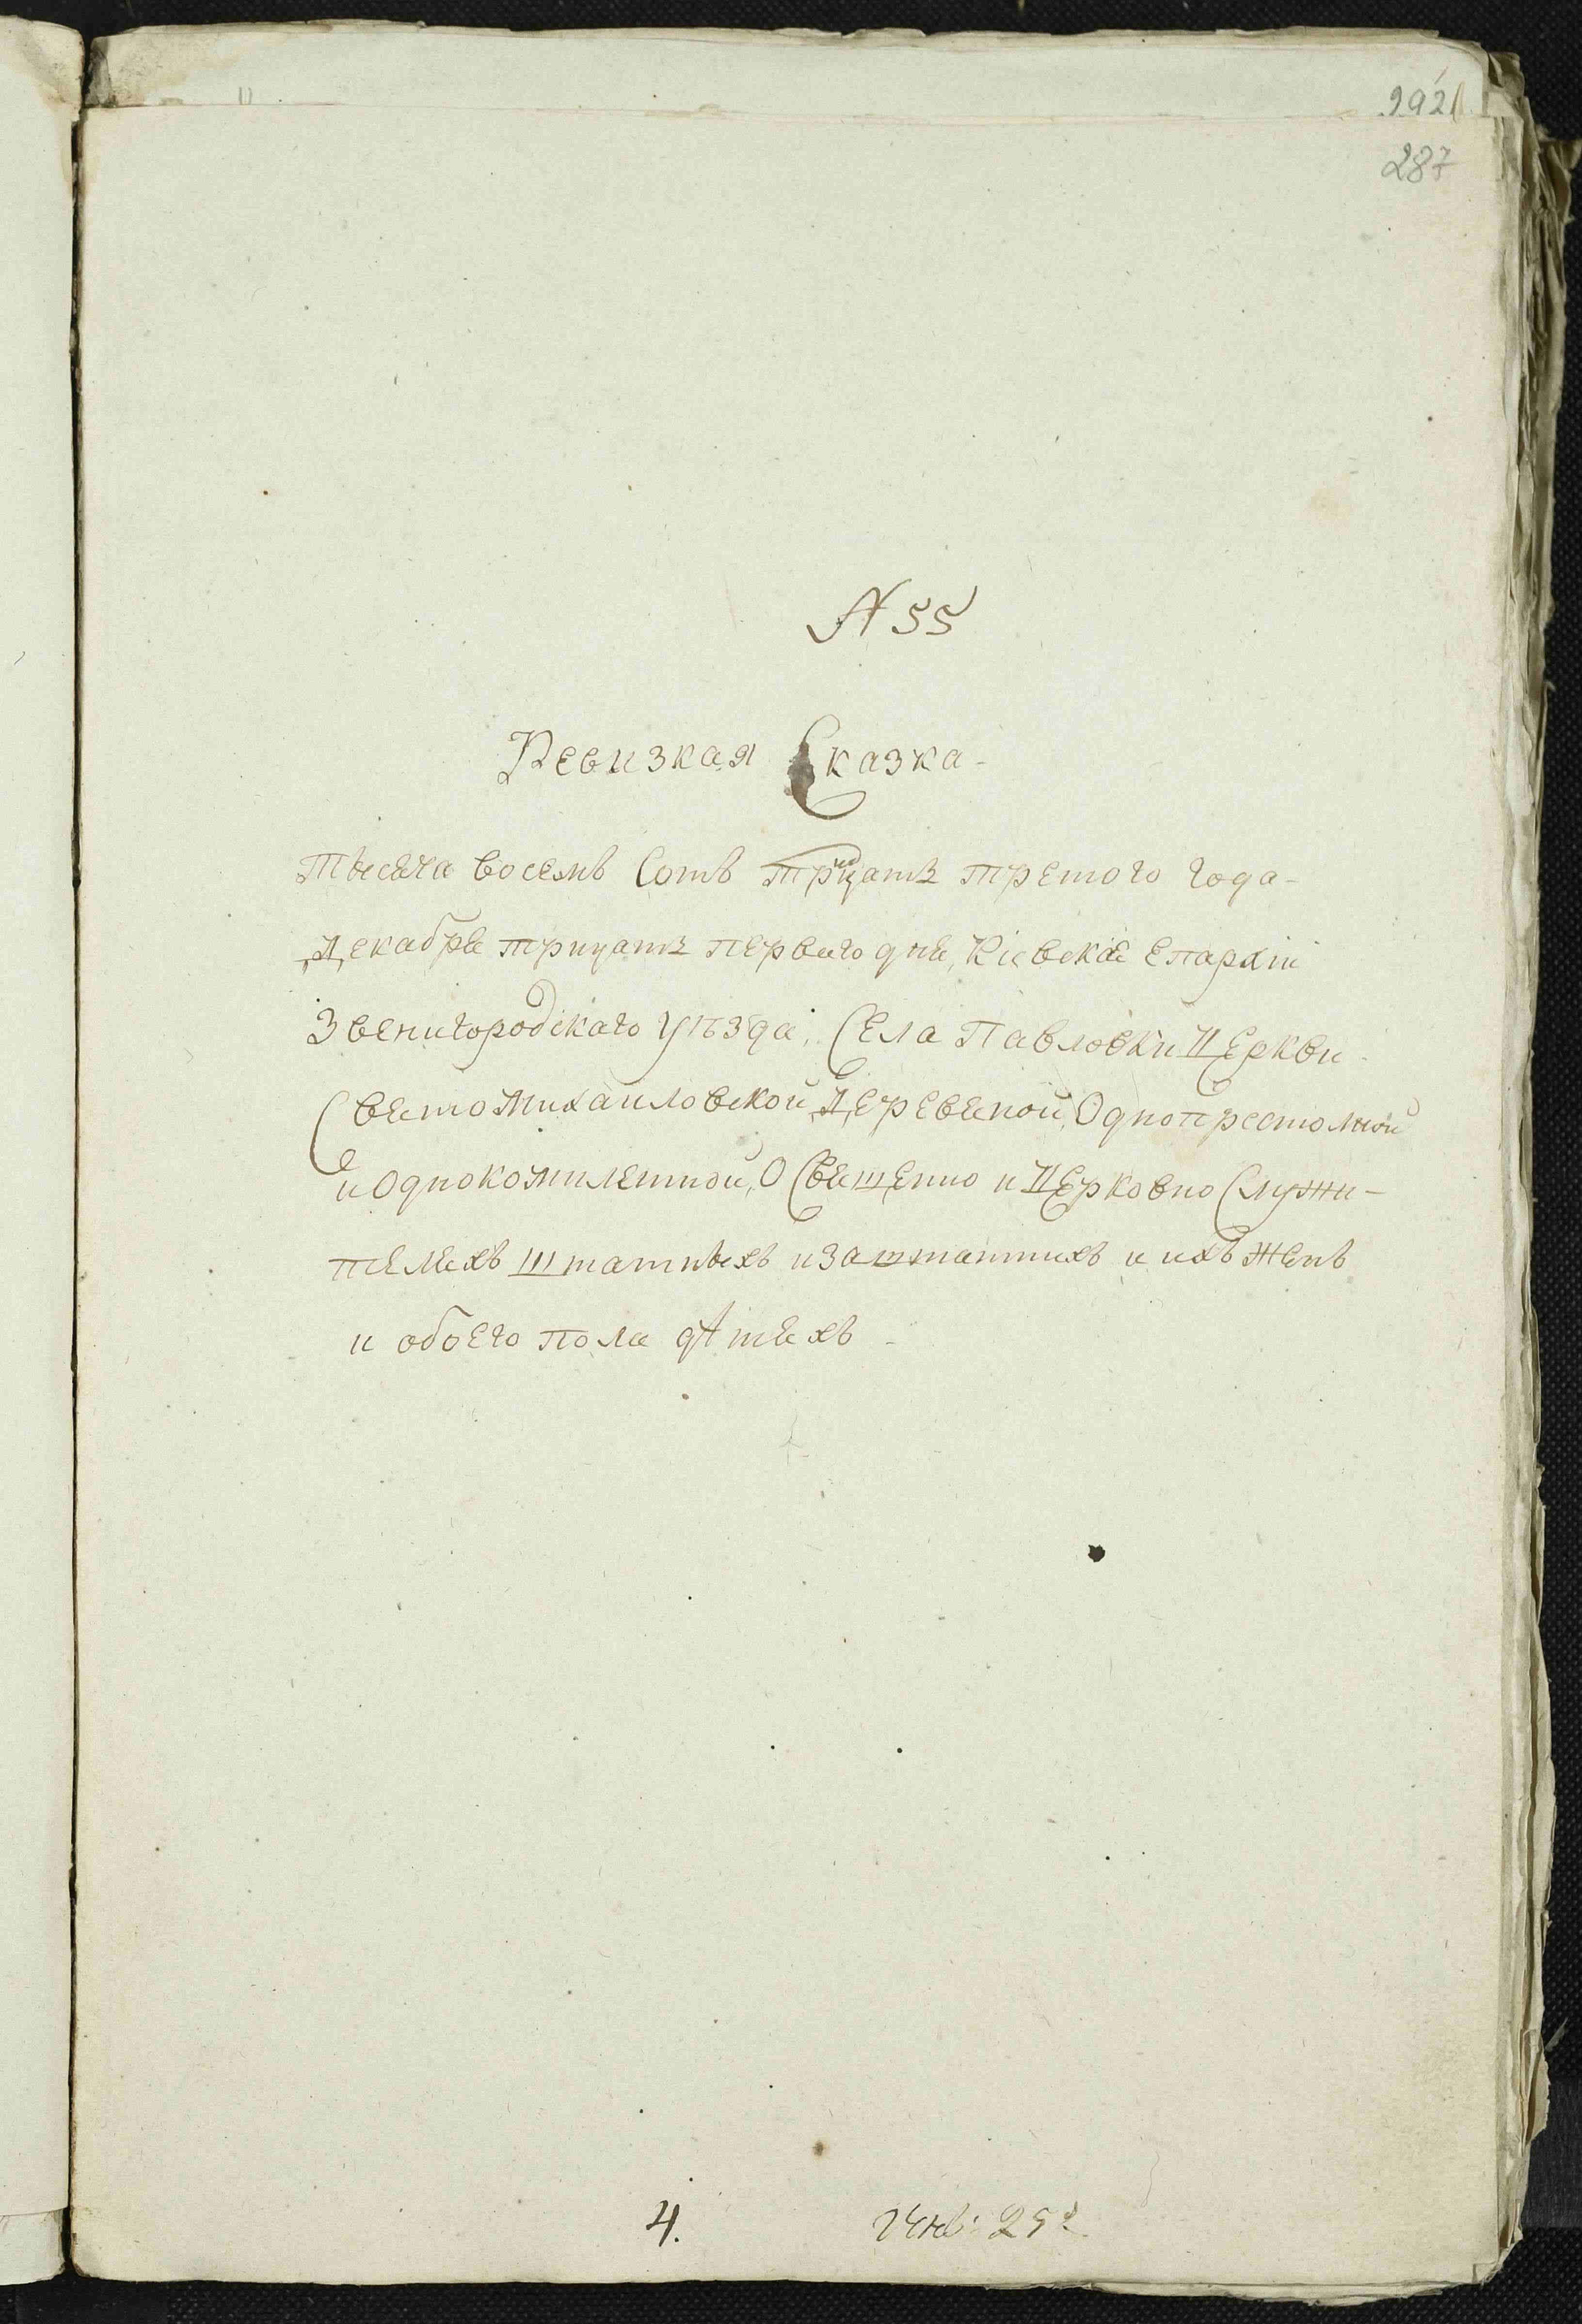 287
№ 55
Ревизкая Сказка
Тысяча восемъ Сотъ Трицать третого года
Декабря трицать первого дня, Кіевской Епархіи
Звенигородскаго уѣзда, Села Павловки Церкви
Святомихаиловской, Деревяной, Однопрестолной
и Однокомплетной, О Священно и Церковно Служи-
телехъ Штатныхъ и Заштатнихъ и ихъ Женъ
и обоего пола дѣтяхъ
4.